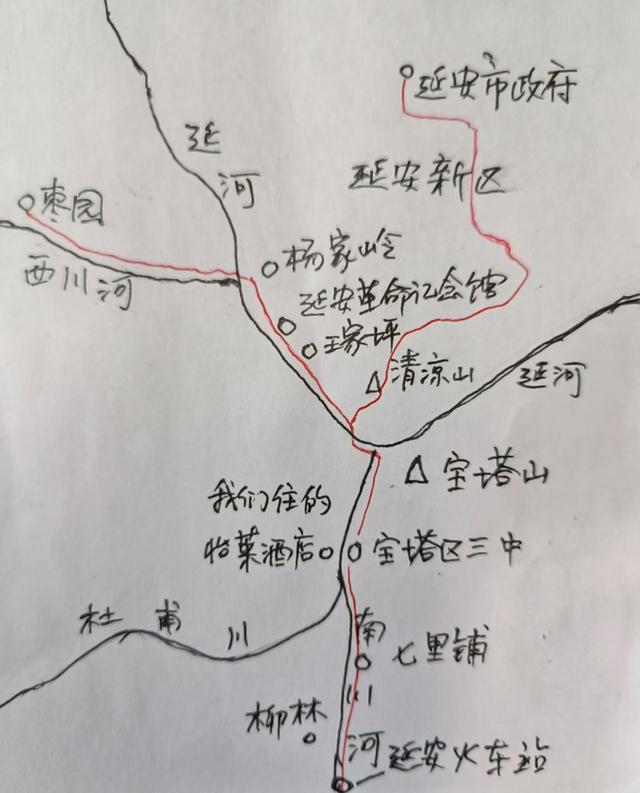 延安市政府
延河
延安新区
枣园
杨家岭
西川河
延安革命记念馆
王家坪
清凉山
延河
宝塔山
我们住的
怡莱酒店
宝塔区三中
杜甫川
南川河
七里铺
柳林
延安火车站